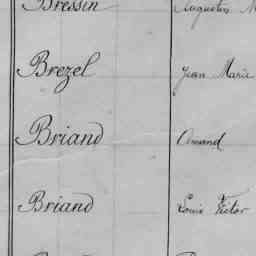 Bressin Augustin M
Brezel Jean Marie
Briand Amand
Briand Louis Victor